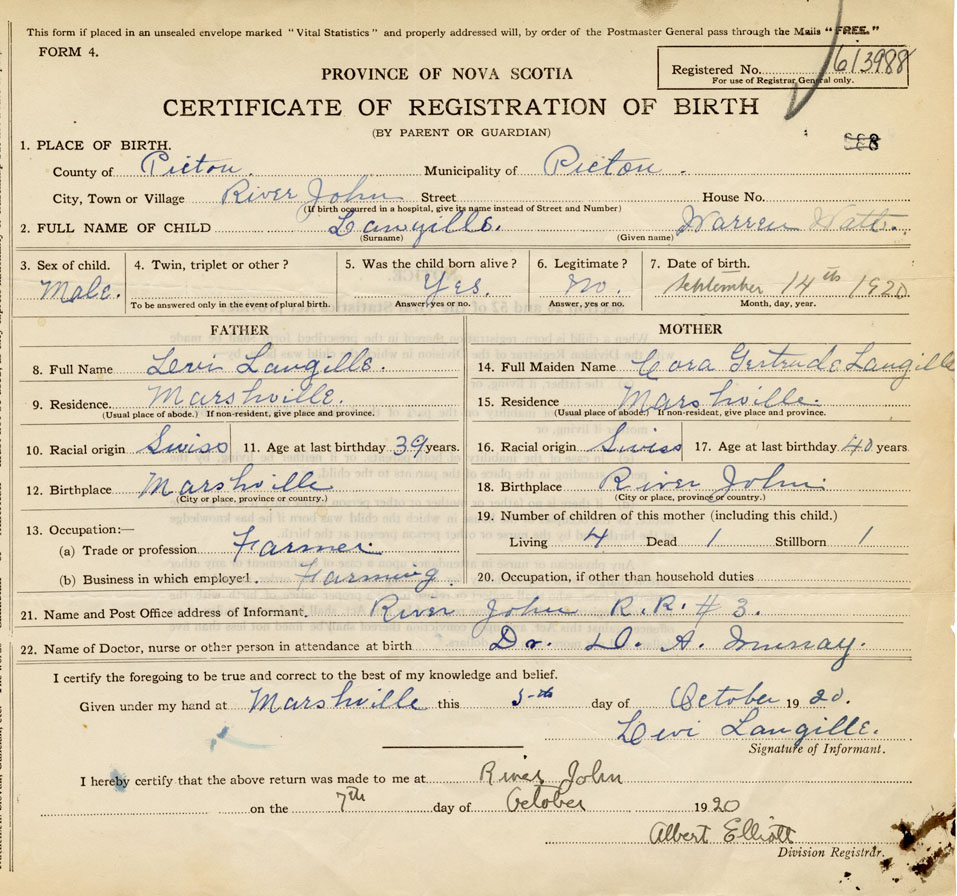 This form if placed in an unsealed envelope marked "Vital Statistics" and properly addressed will, by order of the Postmaster General pass through the Mails "FREE."
FORM 4.
Registered No. 613988
For use of Registrar General only.
PROVINCE OF NOVA SCOTIA
CERTIFICATE OF REGISTRATION OF BIRTH
(BY PARENT OR GUARDIAN)
1. PLACE OF BIRTH.
County of Picton. Municipality of Picton.
City, Town or Village River John Street House No.
(If birth occurred in a hospital, give its name instead of Street and Number)
2. FULL NAME OF CHILD Langille. Warren Watt.
(Surname) (Given name)
3. Sex of child. 4. Twin, triplet or other? 5. Was the child born alive? 6. Legitimate? 7. Date of birth.
Male. Yes. No. September 14th 1920
To be answered only in the event of plural birth. Answer, yes or no. Answer, yes or no. Month, day, year.
FATHER
8. Full Name Levi Langille.
9. Residence Marshville.
(Usual place of abode.) If non-resident, give place and province.
10. Racial origin Swiss 11. Age at last birthday 39 years.
12. Birthplace Marshville
(City or place, province or country.)
13. Occupation:—
(a) Trade or profession Farmer.
(b) Business in which employed. Farming.
MOTHER
14. Full Maiden Name Cora Gertrude Langille
15. Residence Marshville.
(Usual place of abode.) If non-resident, give place and province.
16. Racial origin Swiss 17. Age at last birthday 40 years
18. Birthplace River John.
(City or place, province or country.)
19. Number of children of this mother (including this child.)
Living 4 Dead 1 Stillborn 1
20. Occupation, if other than household duties
21. Name and Post Office address of Informant. River John R.R. # 3.
22. Name of Doctor, nurse or other person in attendance at birth Dr. D. A. Murray.
I certify the foregoing to be true and correct to the best of my knowledge and belief.
Given under my hand at Marshville this 5th day of October 1920.
Levi Langille.
Signature of Informant.
I hereby certify that the above return was made to me at River John
on the 7th day of October 1920
Albert Elliott
Division Registrar.